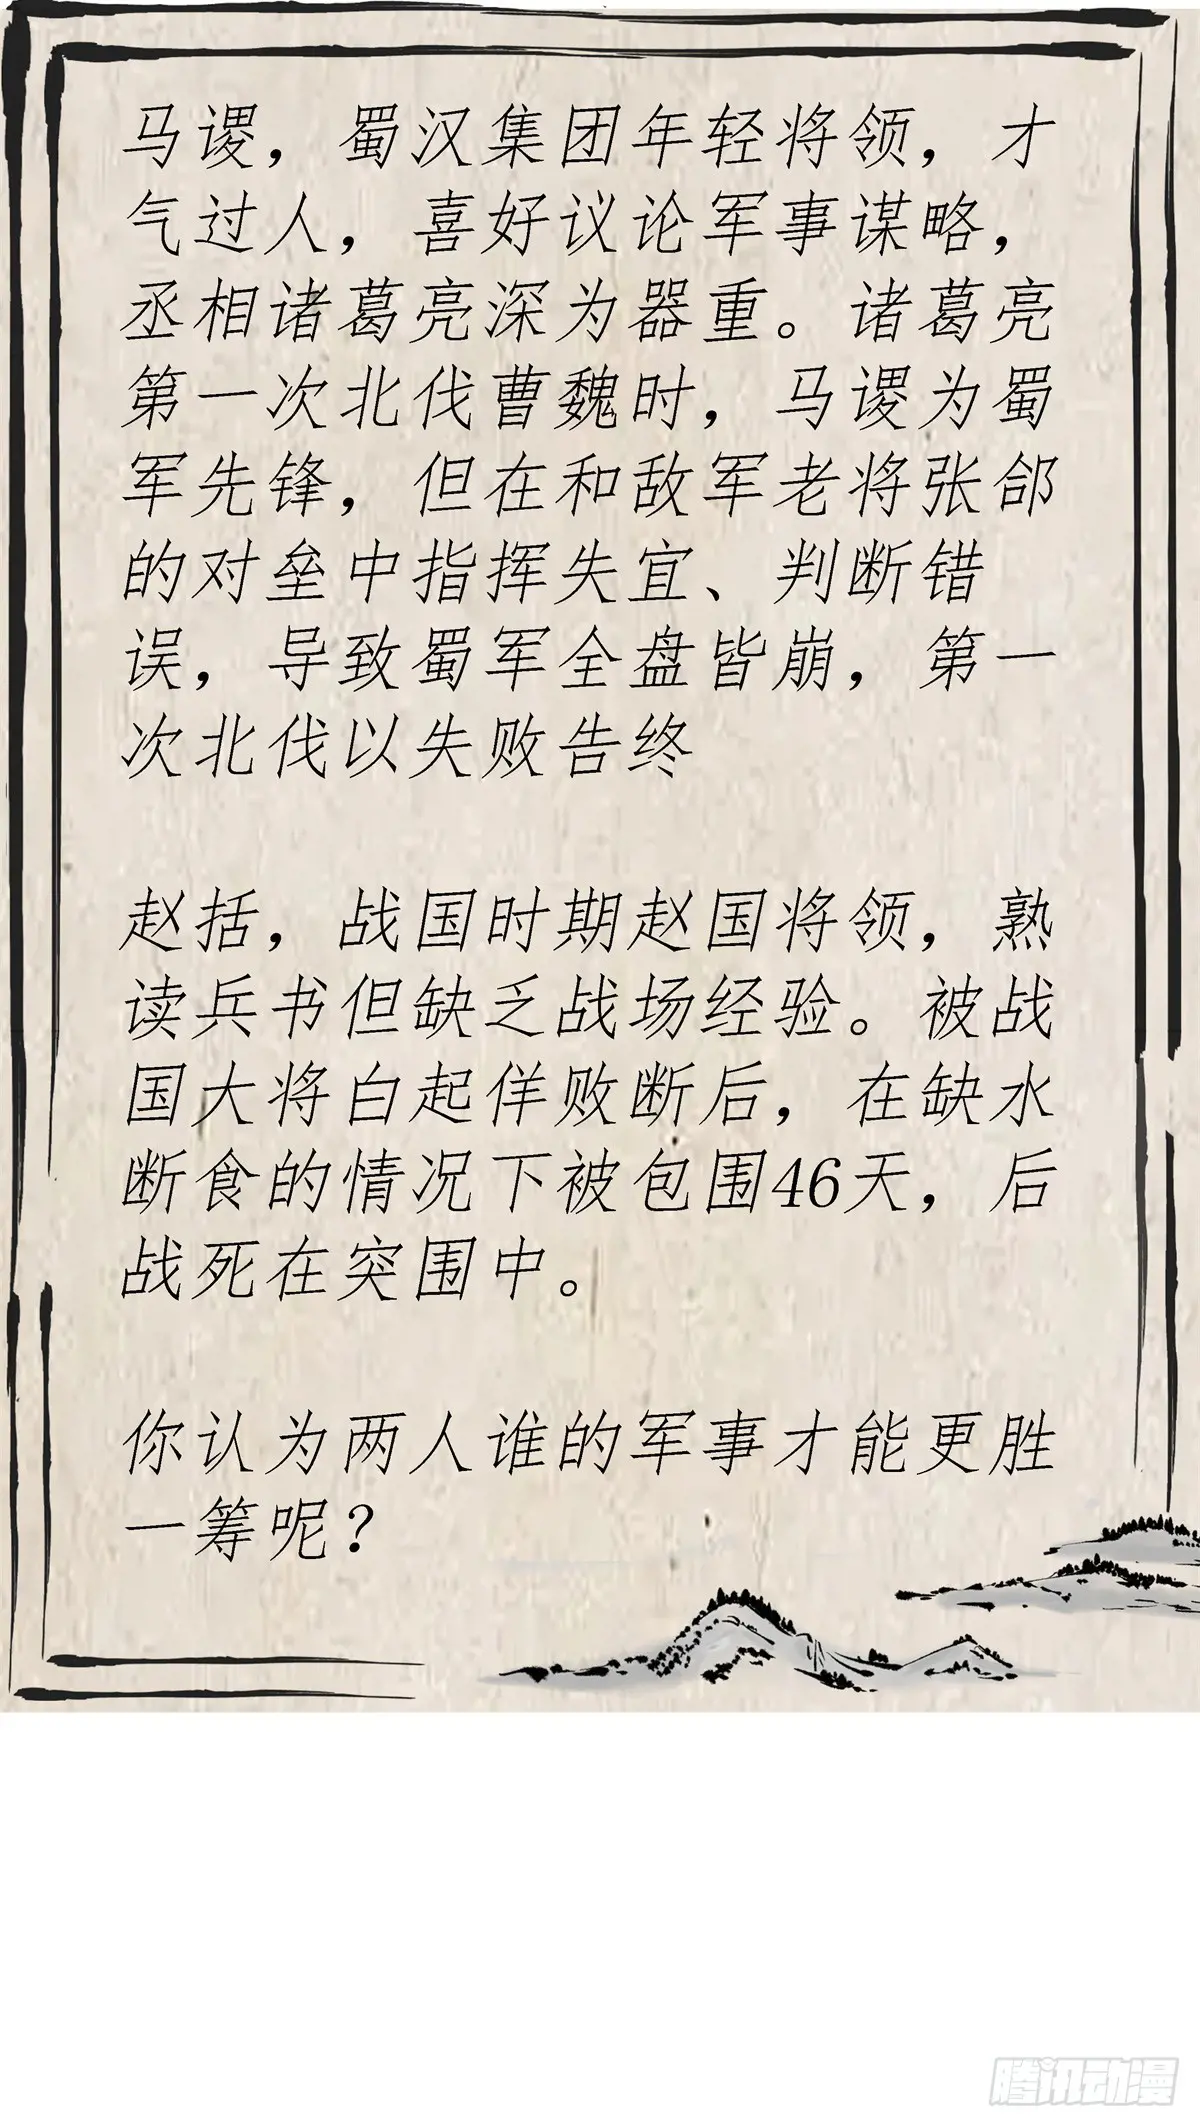 马谡，蜀汉集团年轻将领，才
气过人，喜好议论军事谋略，
丞相诸葛亮深为器重。诸葛亮
第一次北伐曹魏时，马谡为蜀
军先锋，但在和敌军老将张郃
的对垒中指挥失宜、判断错
误，导致蜀军全盘皆崩，第一
次北伐以失败告终
赵括，战国时期赵国将领，熟
读兵书但缺乏战场经验。被战
国大将白起佯败断后，在缺水
断食的情况下被包围46天，后
战死在突围中。
你认为两人谁的军事才能更胜
一筹呢？
腾讯动漫